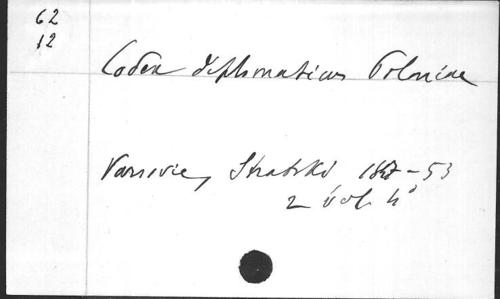 62
12
Codex diplomaticus Poloniae
Varsovie, Strabski 1847-53
2 vol. 4°